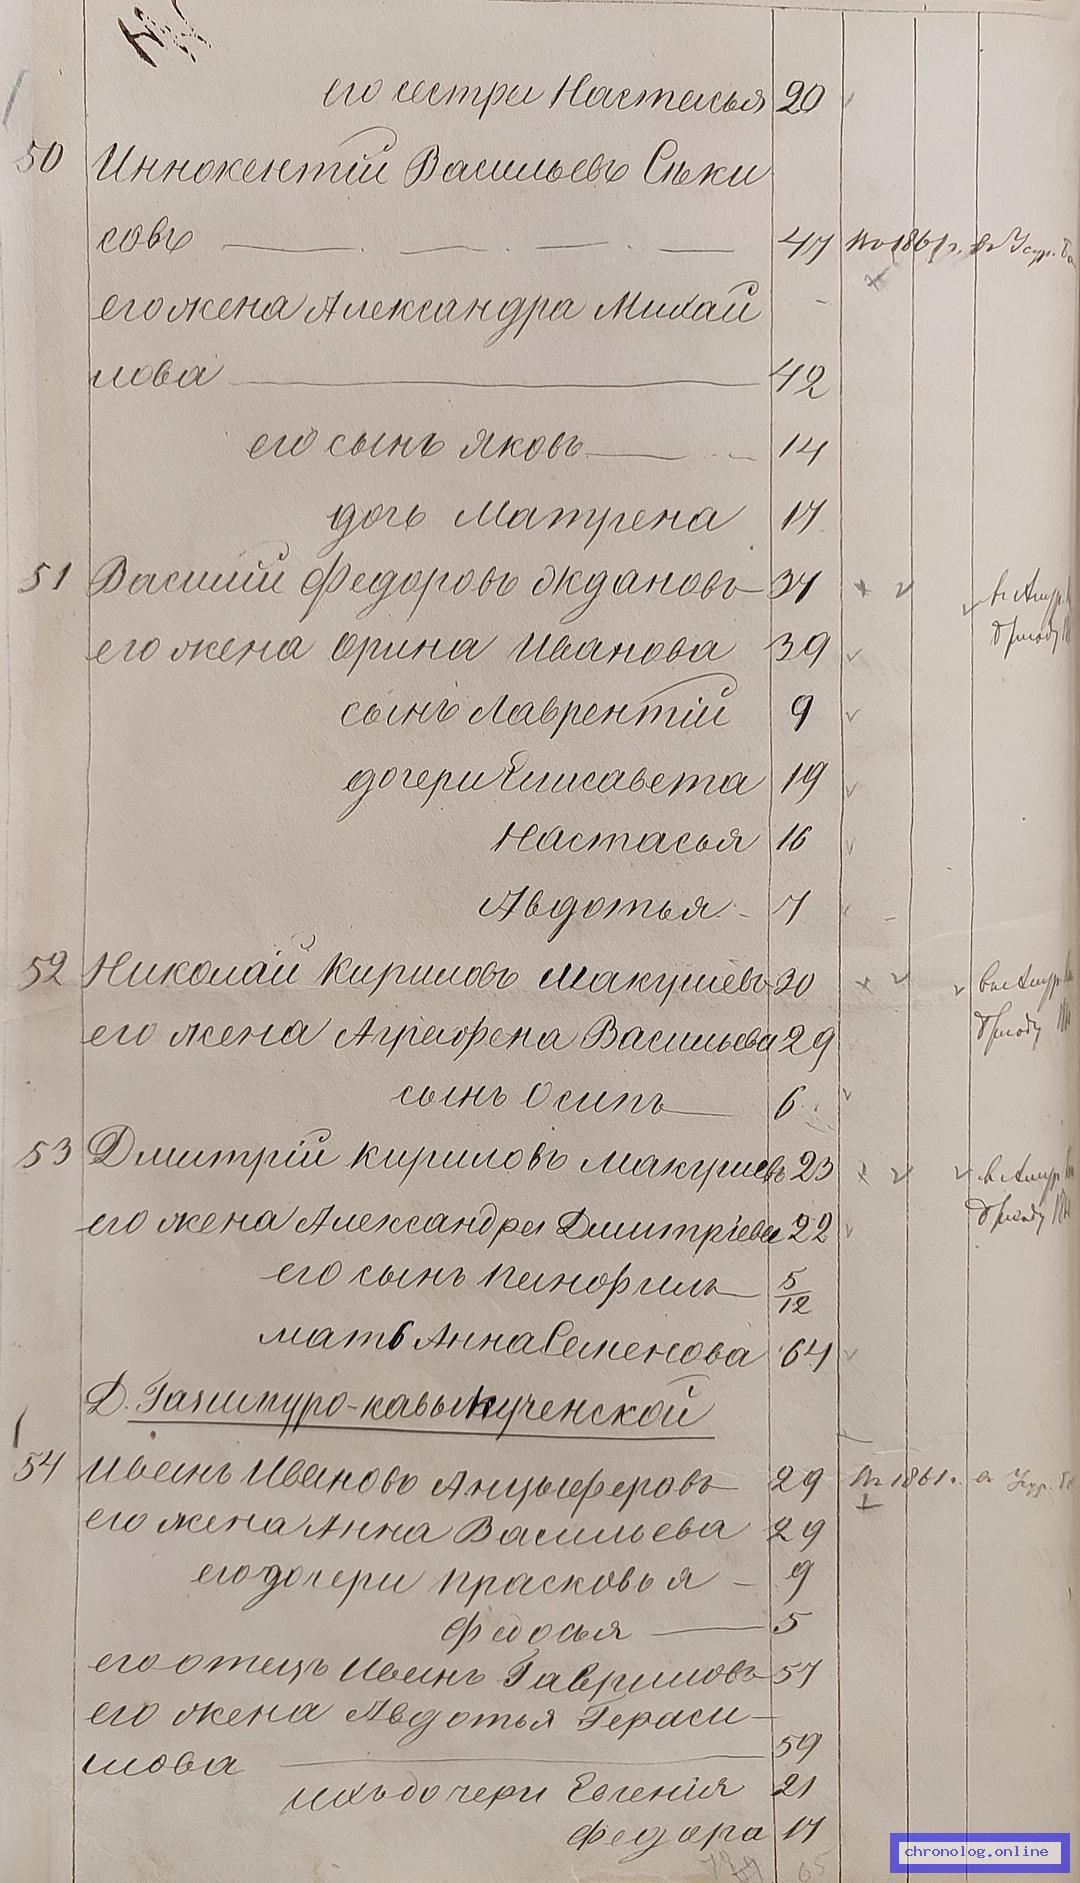 его сестра Настасья 20
50 Иннокентій Васильевъ Съки
совъ 47 Въ 1861 г.
его жена Александра Михай
лова 42
его сынъ Яковъ 14
дочь Матрена 17
51 Василій Федоровъ Ждановъ 37
его жена Орина Иванова 39
сынъ Лаврентій 9
дочери Елисавета 19
Настасья 16
Авдотья 7
52 Николай Кириловъ Макушевъ 30
его жена Аграфена Васильева 29
сынъ Осипъ 6
53 Дмитрій Кириловъ Макушевъ 23
его жена Александра Дмитріева 22
его сынъ Панфилъ 5/12
мать Анна Семенова 64
Д. Газимуро-кавыкученской
54 Иванъ Ивановъ Анцыферовъ 29 Въ 1861 г.
его жена Анна Васильева 29
его дочери Прасковья 9
Федосья 5
его отецъ Иванъ Гавриловъ 57
его жена Авдотья Гераси
мова 59
ихъ дочери Евгенія 21
Федора 17
chronolog.online